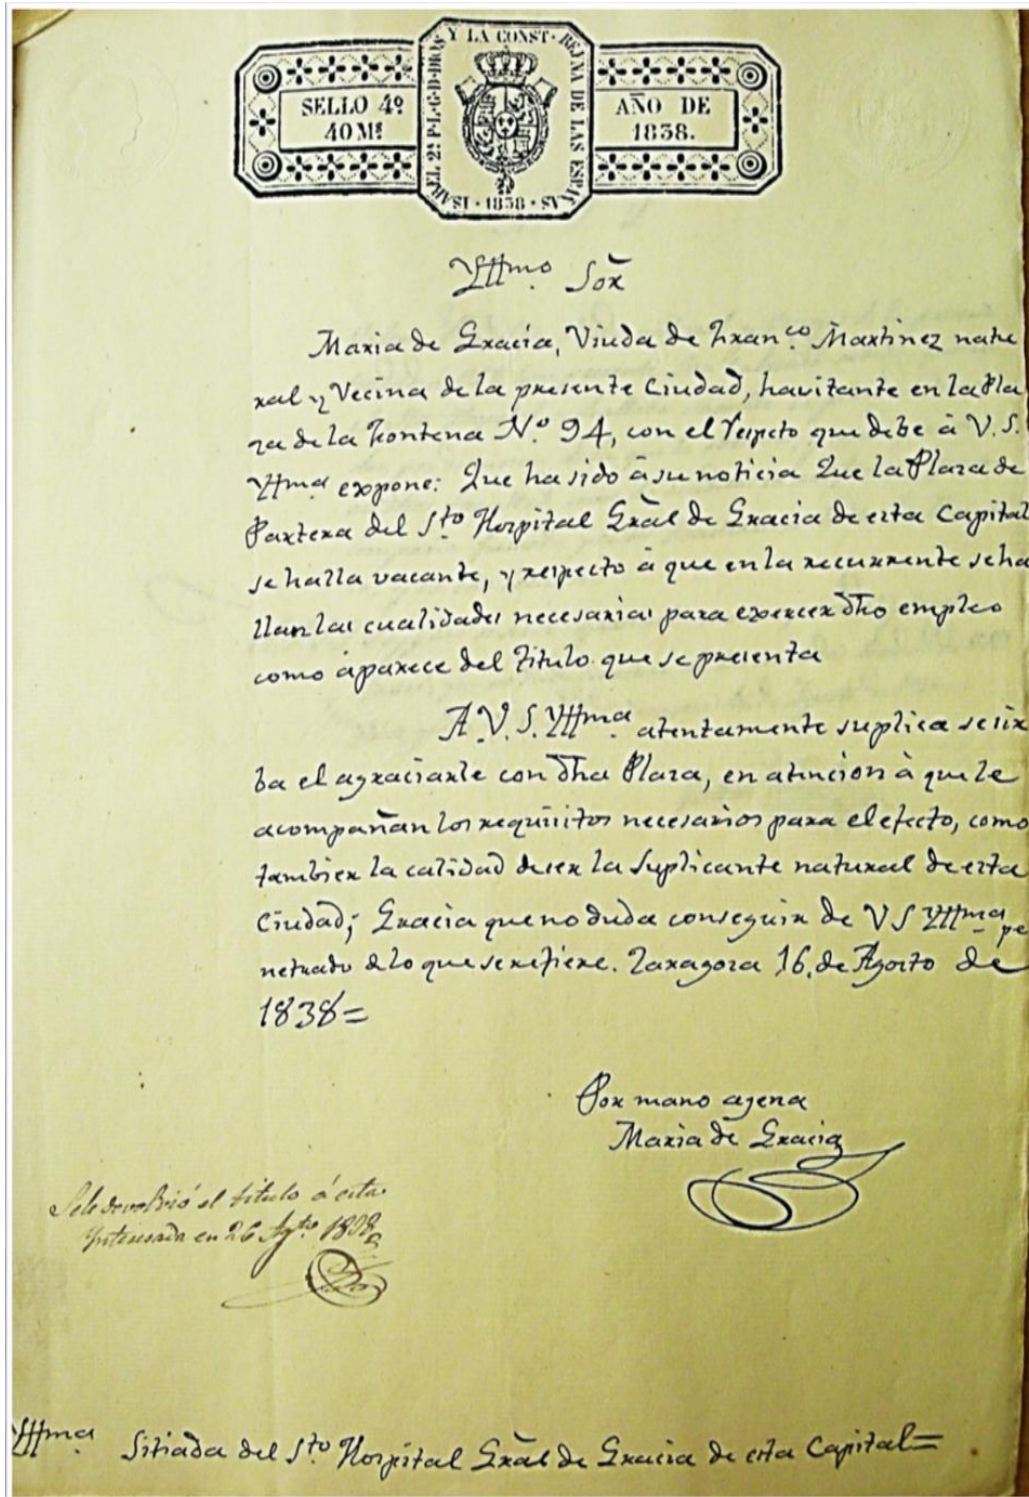 ISABEL 2ª P.L.G.D.DIOS Y LA CONST. REJNA DE LAS ESPAÑAS · 1838 ·
SELLO 4º
40 Ms
AÑO DE
1838.
Yllmo. Sòr
Maria de Gracia, Viuda de Franco. Martinez natu
ral y Vecina de la presente Ciudad, havitante en la Pla
za de la Fontena N.º 94, con el respeto que debe à V. S.
Yllma expone: Que ha sido à su noticia Que la Plaza de
Partera del Sto. Hospital Gràl de Gracia de esta Capital
se halla vacante, y respecto à que en la recurrente se ha
llan las cualidades necesarias para exercer dho empleo
como àparece del Titulo que se presenta
A. V. S. Yllma. atentamente suplica se sir
ba el agraciarle con dha Plaza, en atencion à que le
acompañan los requisitos necesarios para el efecto, como
tambien la calidad de ser la Suplicante natural de esta
Ciudad; Gracia que no duda conseguir de V S Yllma pe
netrado de lo que se refiere. Zaragoza 16, de Agosto de
1838=
Por mano agena
Maria de Gracia
Se le devolvió el titulo á esta
Interesada en 26 Agto. 1838
Yllma. Sitiada del Sto. Hospital Gràl de Gracia de esta Capital=